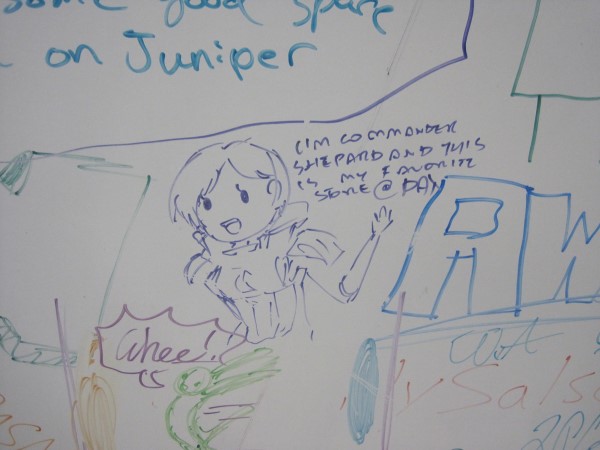 some good spare
on Juniper
I'M COMMANDER
SHEPARD AND THIS
IS MY FAVORITE
STORE @ DAN
RW
Whee!!